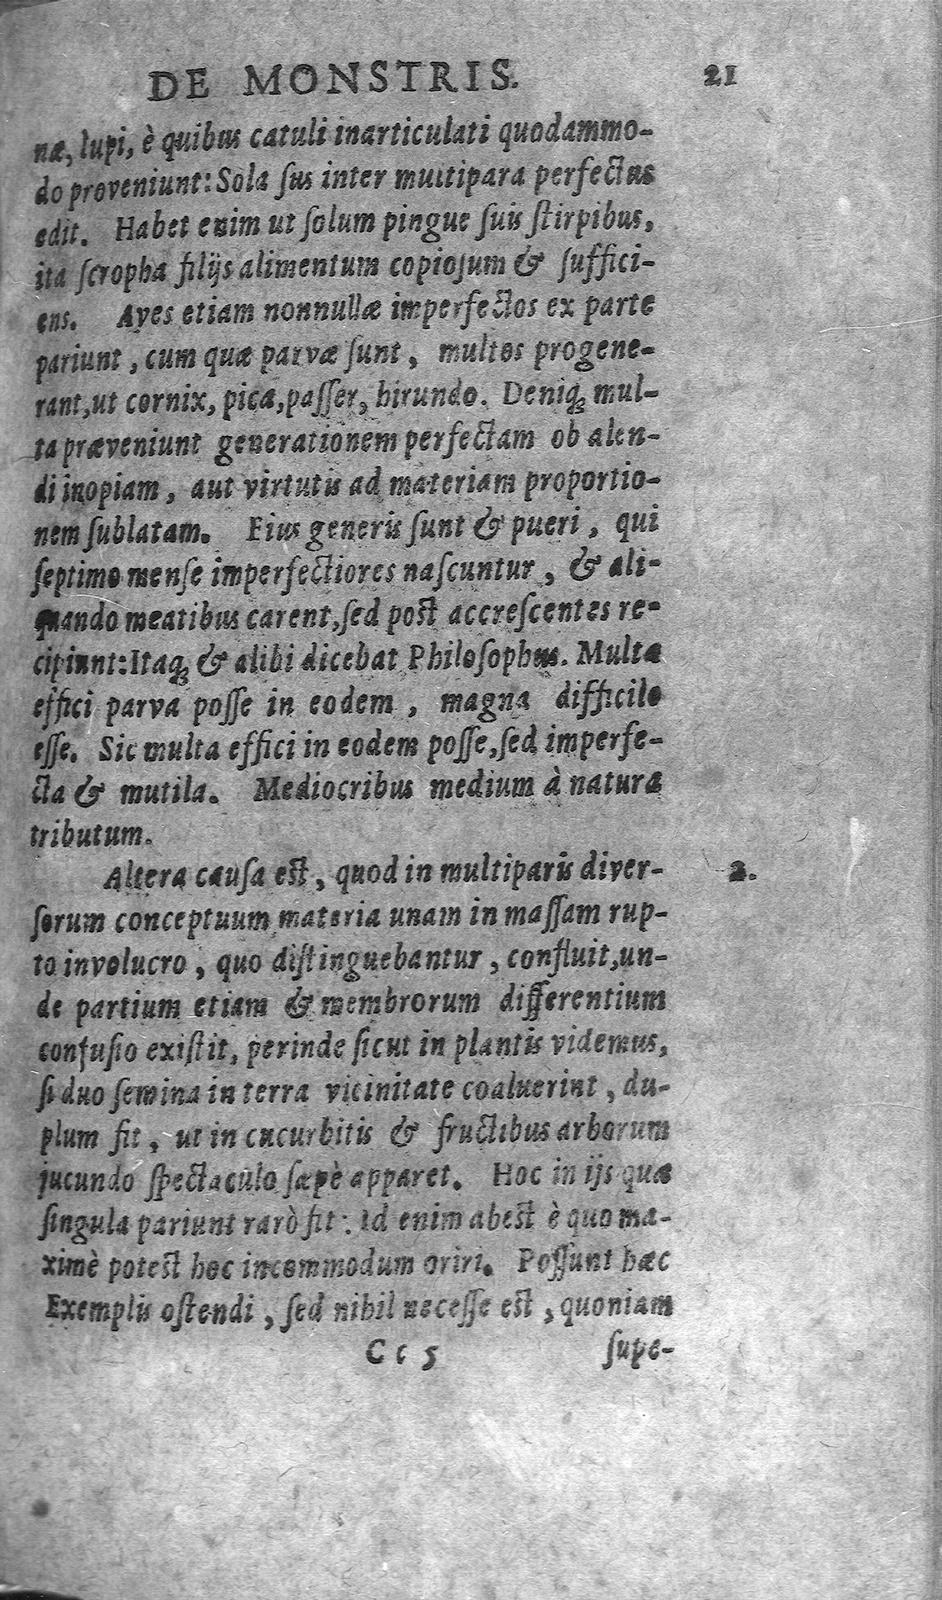 DE MONSTRIS. 21
næ, lupi, è quibus catuli inarticulati quodammo-
do proveniunt: Sola ſus inter multipara perfectus
edit. Habet enim ut ſolum pingue ſuis ſtirpibus,
ita ſcropha filijs alimentum copioſum & ſuffici-
ens. Aves etiam nonnullæ imperfectos ex parte
pariunt, cum quæ parvæ ſunt, multos progene-
rant, ut cornix, pica, paſſer, hirundo. Deniq; mul-
ta præveniunt generationem perfectam ob alen-
di inopiam, aut virtutis ad materiam proportio-
nem ſublatam. Eius generis ſunt & pueri, qui
ſeptimo menſe imperfectiores naſcuntur, & ali-
quando meatibus carent, ſed poſt accreſcentes re-
cipiunt: Itaq; & alibi dicebat Philoſophus. Multa
effici parva poſſe in eodem, magna difficile
eſſe. Sic multa effici in eodem poſſe, ſed imperfe-
cta & mutila. Mediocribus medium à natura
tributum.
Altera cauſa eſt, quod in multiparis diver- 2.
ſorum conceptuum materia unam in maſſam rup-
to involucro, quo diſtinguebantur, confluit, un-
de partium etiam & membrorum differentium
confuſio exiſtit, perinde ſicut in plantis videmus,
ſi duo ſemina in terra vicinitate coaluerint, du-
plum fit, ut in cucurbitis & fructibus arborum
jucundo ſpectaculo ſæpè apparet. Hoc in ijs quæ
ſingula pariunt rarò fit: Id enim abeſt è quo ma-
ximè poteſt hoc incommodum oriri. Poſſunt hæc
Exemplis oſtendi, ſed nihil neceſſe eſt, quoniam
Cc 5 ſupe-